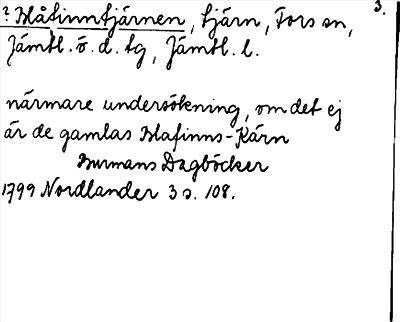 3.
? Blåfinntjärnen, tjärn, Fors sn,
Jämtl. ö. d. tg, Jämtl. l.
närmare undersökning, om det ej
är de gamlas Blafinns-Kärn
Burmans Dagböcker
1799 Nordlander 3 s. 108.